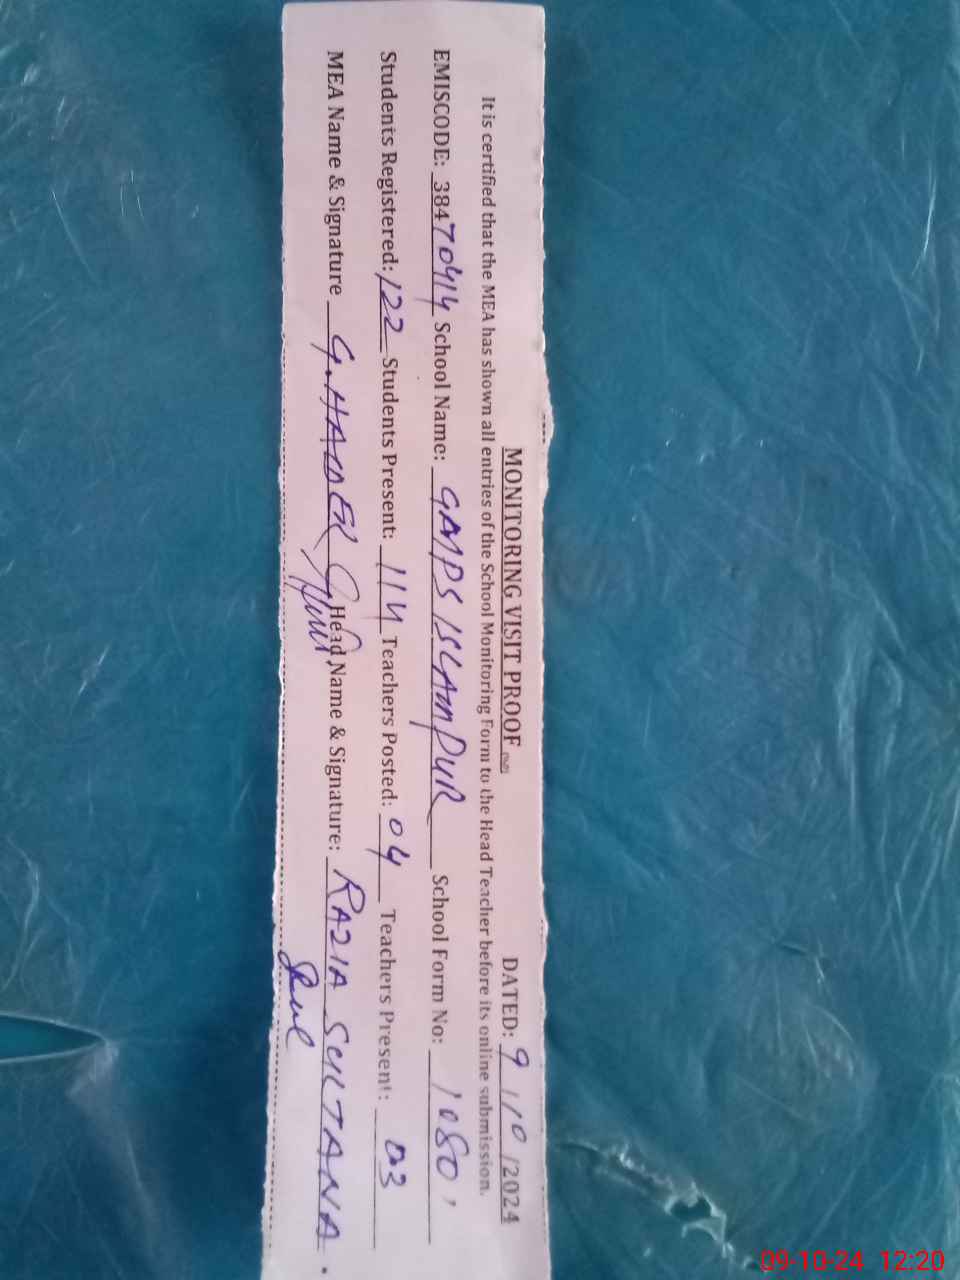 MONITORING VISIT PROOF DATED: 9/10/2024
It is certified that the MEA has shown all entries of the School Monitoring Form to the Head Teacher before its online submission.
EMISCODE: 38470414 School Name: GMPS ISLAMPUR School Form No: 1080
Students Registered: 122 Students Present: 114 Teachers Posted: 04 Teachers Present: 03
MEA Name & Signature G.HAIDER Head Name & Signature: RAZIA SULTANA
09-10-24 12:20